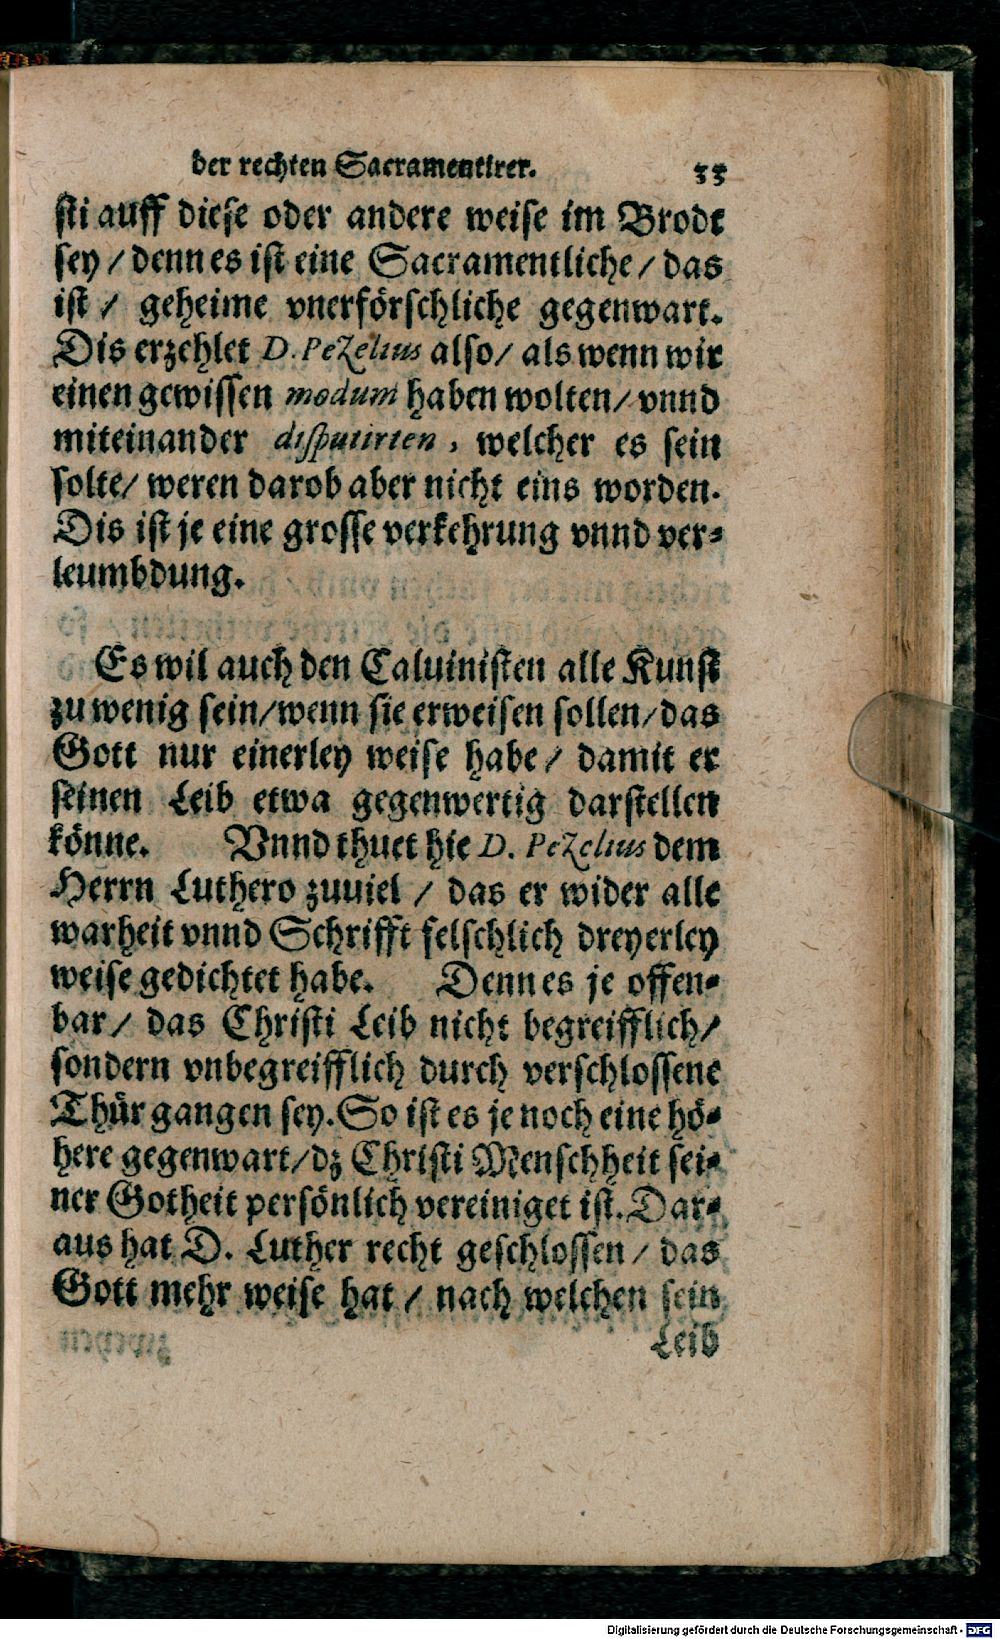 der rechten Sacramentirer. 33
sti auff diese oder andere weise im Brodt
sey / denn es ist eine Sacramentliche / das
ist / geheime vnerförschliche gegenwart.
Dis erzehlet D. Pezelius also / als wenn wir
einen gewissen modum haben wolten / vnnd
miteinander disputirten, welcher es sein
solte / weren darob aber nicht eins worden.
Dis ist je eine grosse verkehrung vnnd ver-
leumbdung.
Es wil auch den Caluinisten alle Kunst
zu wenig sein / wenn sie erweisen sollen / das
Gott nur einerley weise habe / damit er
seinen Leib etwa gegenwertig darstellen
könne. Vnnd thuet hie D. Pezelius dem
Herrn Luthero zuuiel / das er wider alle
warheit vnnd Schrifft felschlich dreyerley
weise gedichtet habe. Denn es je offen-
bar / das Christi Leib nicht begreifflich /
sondern vnbegreifflich durch verschlossene
Thür gangen sey. So ist es je noch eine hö-
here gegenwart / dz Christi Menschheit sei-
ner Gotheit persönlich vereiniget ist. Dar-
aus hat D. Luther recht geschlossen / das
Gott mehr weise hat / nach welchen sein
Leib
Digitalisierung gefördert durch die Deutsche Forschungsgemeinschaft - DFG